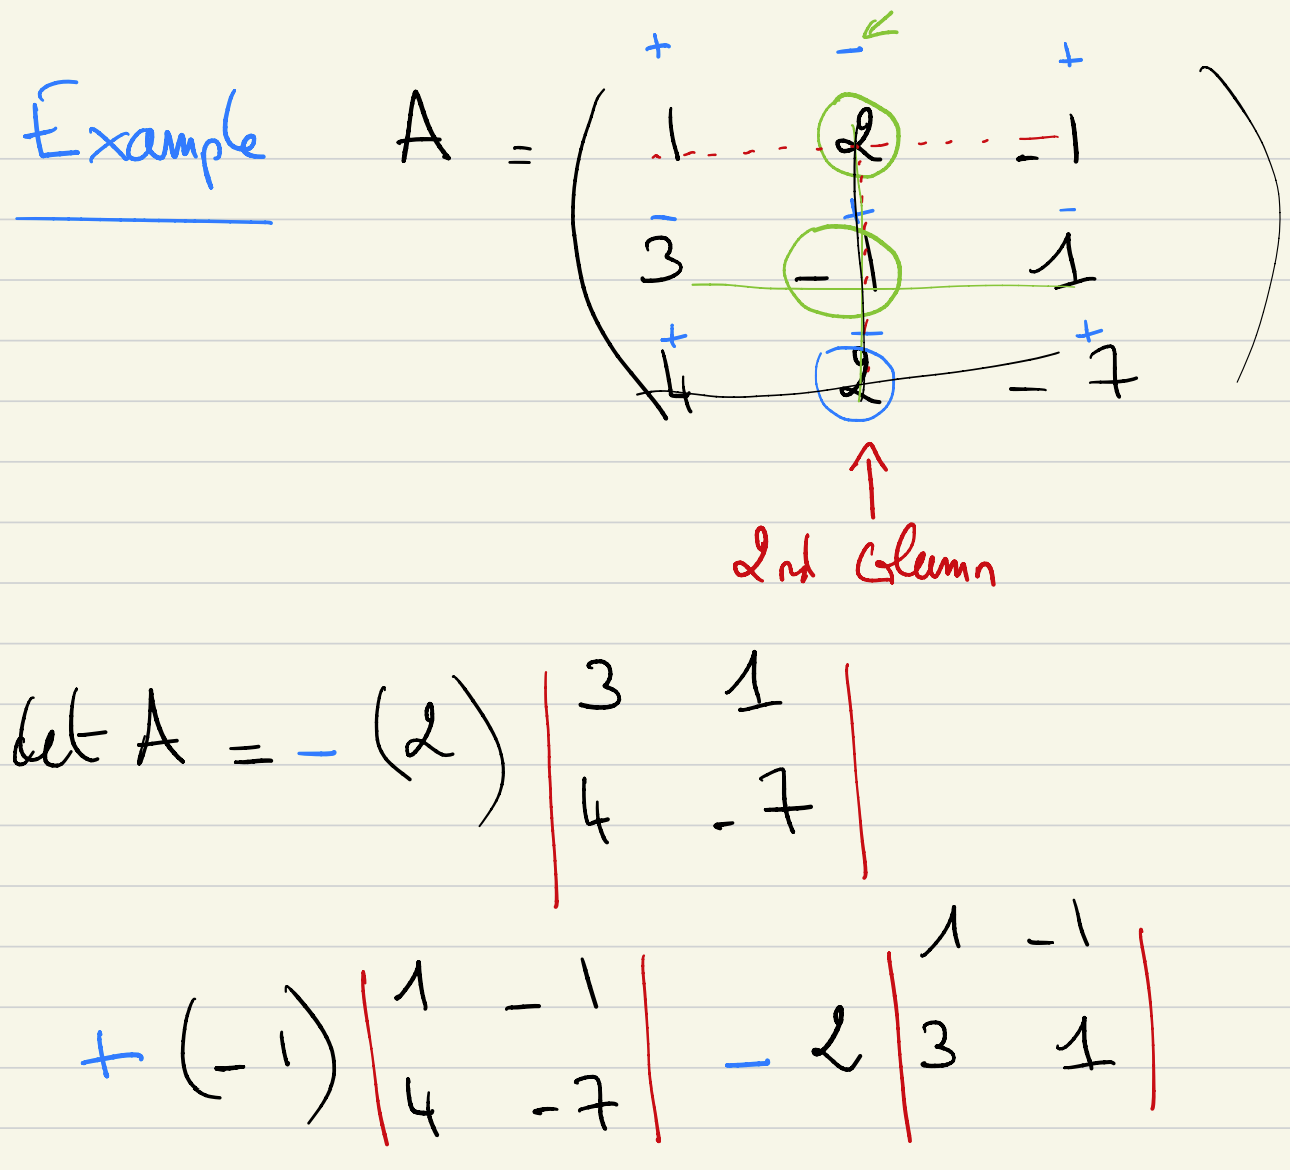 + - +
Example A = ( 1 2 -1 )
- + -
3 -1 1
+ - +
4 2 -7
2nd column
det A = - (2) | 3 1 |
4 -7
+ (-1) | 1 -1 | - 2 | 1 -1 |
4 -7 3 1